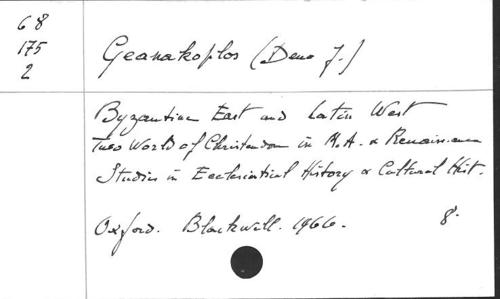 68
175
2
Geanakoplos (Deno J.)
Byzantine East and Latin West
Two World of Christendom in M.A. & Renaissance
Studies in Ecclesiastical History & Cultural Hist.
Oxford. Blackwell. 1966. 8°